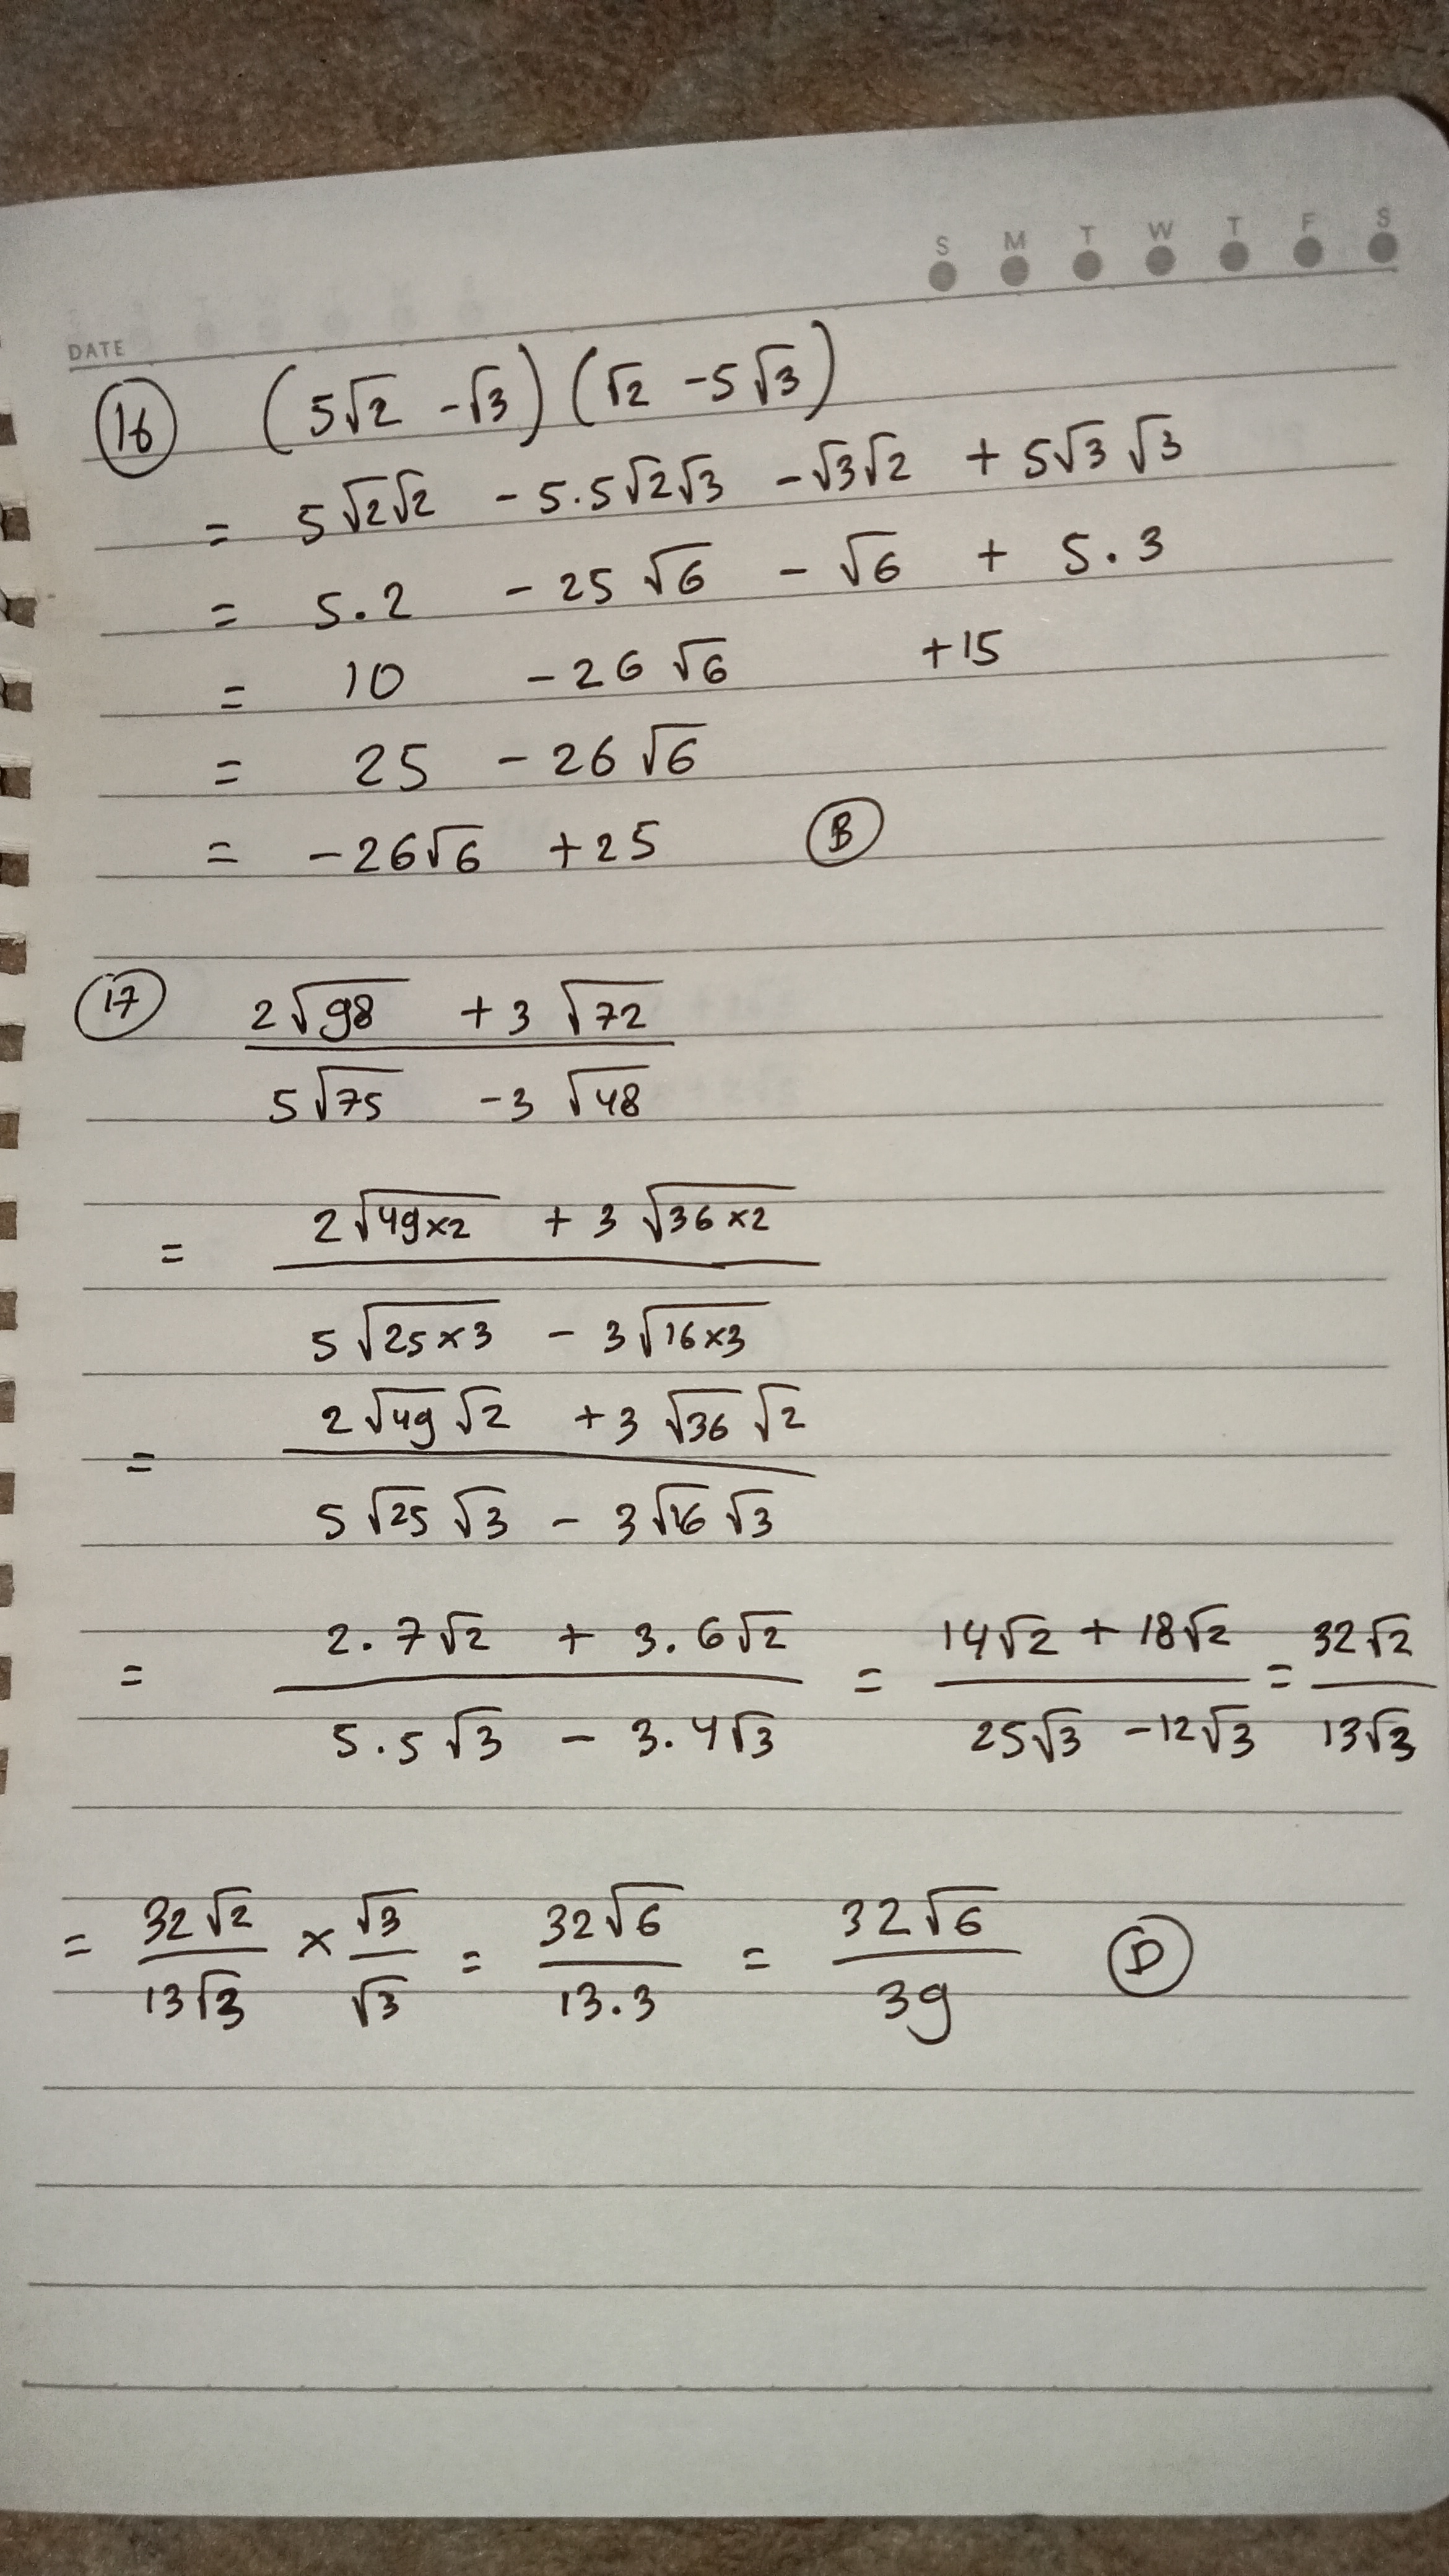 S M T W T F S
DATE
16 (5√2 -√3) (√2 -5√3)
= 5√2√2 - 5.5√2√3 - √3√2 + 5√3 √3
= 5.2 - 25√6 - √6 + 5.3
= 10 - 26√6 +15
= 25 - 26√6
= - 26√6 +25 B
17 2√98 + 3√72
5√75 - 3√48
= 2√49×2 + 3√36×2
5√25×3 - 3√16×3
= 2√49 √2 + 3√36 √2
5√25 √3 - 3√16 √3
= 2.7√2 + 3.6√2 = 14√2 + 18√2 = 32√2
5.5√3 - 3.4√3 25√3 - 12√3 13√3
= 32√2 × √3 = 32√6 = 32√6 D
13√3 √3 13.3 39